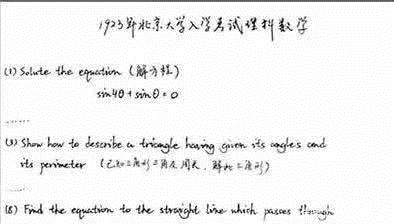 1923年北京大学入学考试理科数学
(1) Solute the equation (解方程)
sin4θ+sinθ=0
......
(3) Show how to describe a triangle having given its angles and
its perimeter (已知三角形三角及周长，解此三角形)
......
(8) Find the equation to the straight line which passes through